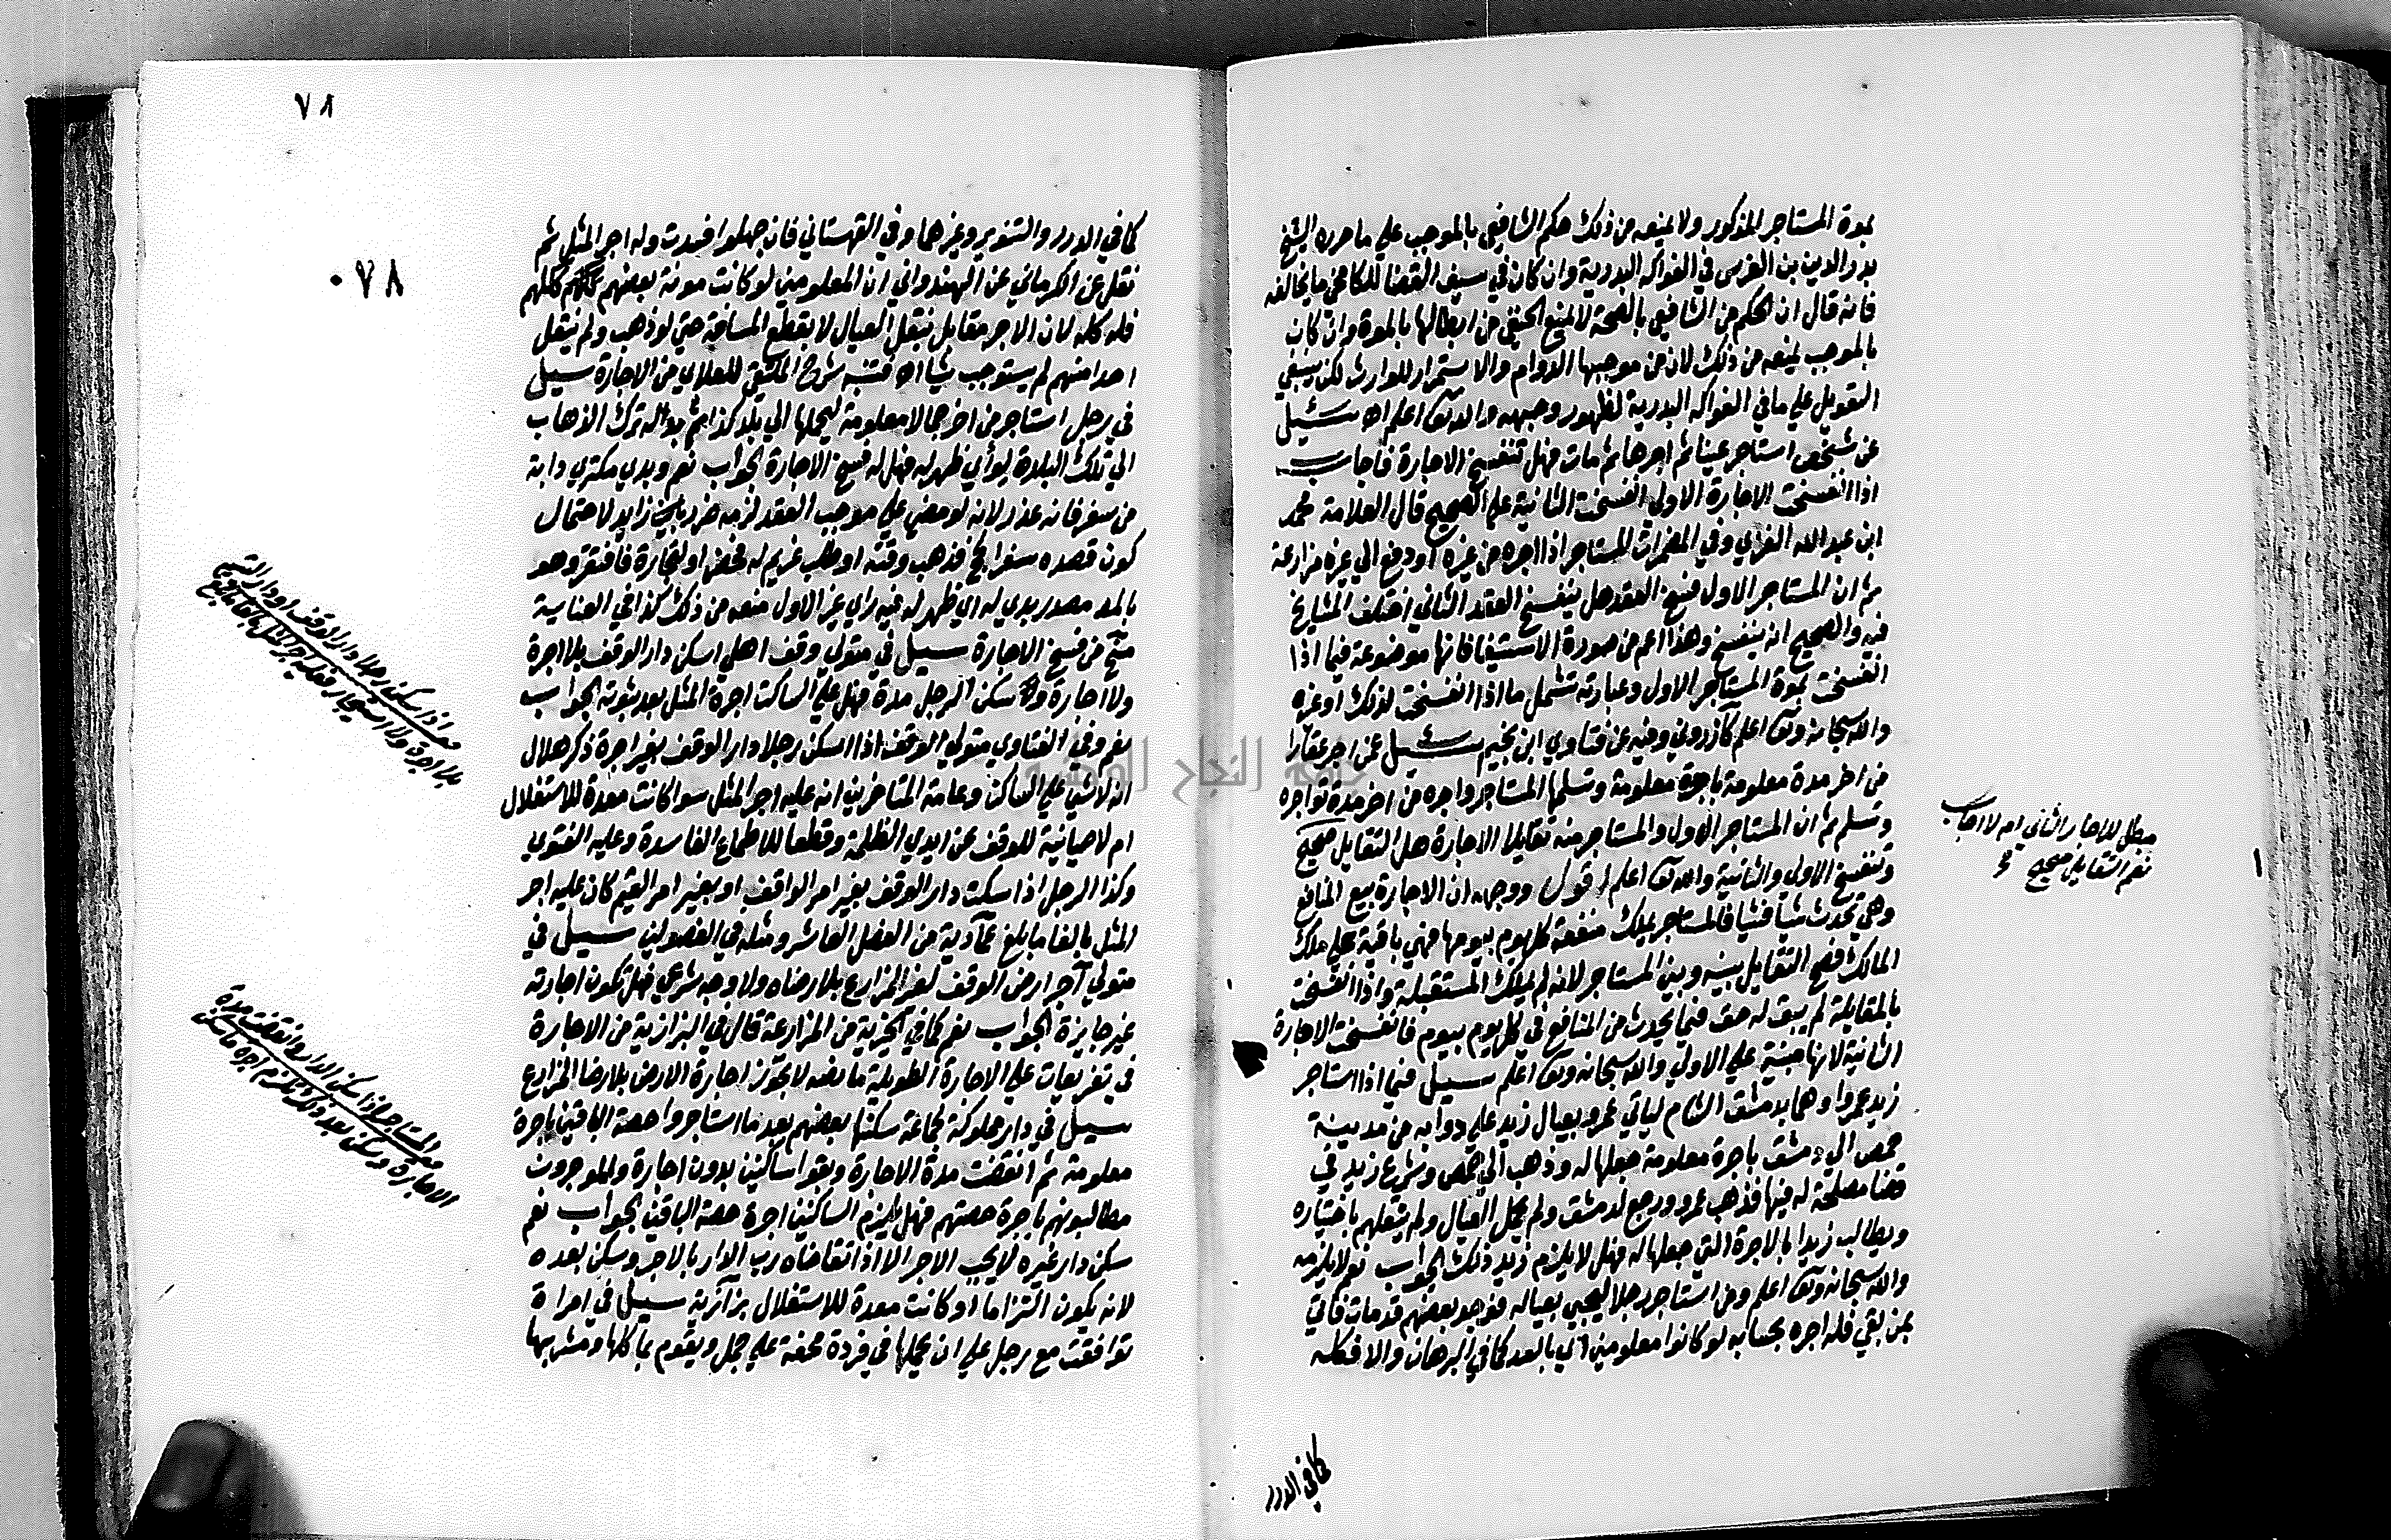 بموة المستاجر المذكور ولا يمنعه من ذلك حكم الشافعي بالموجب علي ما حرره الشيخ
بدر الدين بن الغرس في الفواكه البدرية وان كان في سيف القضا للكافيجي ما يخالفه
فانه قال ان الحكم من الشافعي بالصحة لا يمنع الحنفي من ابطالها بالموة وان كان
بالموجب يمنعه من ذلك لان من موجبها الدوام والاستمرار للوارث لكن ينبغي
التعويل علي ما في الفواكه البدرية لظهور وجهه والله تعا اعلم اه سئيل
عن شخص استاجر عينا ثم اجرها ثم مات فهل تنفسخ الاجارة فاجاب
اذا انفسخت الاجارة الاولي انفسخت الثانية علي الصحيح قال العلامة محمد
ابن عبد الله الغزي وفي المضمرات المستاجر اذا اجره من غيره او دفع الي غيره مزارعة
ثم ان المستاجر الاول فسخ العقد هل ينفسخ العقد الثاني اختلف المشايخ
فيه والصحيح انه ينفسخ وهذا اعم من صورة الاستيفا فانها موضوعة فيما اذا
انفسخت بموة المستاجر الاول وعبارته تشمل ما اذا انفسخت لذلك او غيره
والله سبحانه وتعا اعلم كازروني وفيه عن فتاوي ابن نجيم سئيل عمن اجر عقارا
من اخر مدة معلومة باجرة معلومة وتسلمها المستاجر واجره من اخر مدة تواجره
وتسلم ثم ان المستاجر الاول والمستاجر منه تقايلا الاجارة هل التقايل صحيح
وتنفسخ الاولي والثانية والله تعا اعلم اقول ووجهه ان الاجارة بيع المنافع
وهي تحدث شيأ فشيا فالمستاجر يملك منفعة كل يوم بيومها فهي باقية علي ملك
المالك فصح التقايل بينه وبين المستاجر لانه لم يملك المستقبلة واذا انفسخت
بالمقايلة لم يبق له حق فيما يحدث من المنافع في كل يوم بيوم فانفسخت الاجارة
الثانية لانها مبنية علي الاولي والله سبحانه وتعا اعلم سيل فيما اذا استاجر
زيد عمروا وهما بدمشق الشام لياتي عمرو بعيال زيد علي دوابه من مدينة
حمص الي دمشق باجرة معلومة جعلها له وذهب الي حمص وشرع زيد في
قضا مصلحة له فيها فذهب عمرو ورجع لدمشق ولم يحمل العيال ولم ينقلهم باختياره
ويطالب زيدا بالاجرة التي جعلها له فهل لا يلزم زيد ذلك الجواب نعم لا يلزمه
والله سبحانه وتعا اعلم ومن استاجر رجلا ليجي بعياله فوجد بعضهم قد مات فاتي
بمن بقي فله اجره بحسابه لو كانوا معلومين اي بالعدد كما في البرهان والا فكله
كما في الدرر
مطل للاجار الثاني ام لا اجاب
نعم التقايل صحيح
٧٨
٠٧٨
كما في الدرر والتنوير وغيرهما وفي القهستاني فان جهلوا فسدت وله اجر المثل ثم
نقل عن الكرماني عن الهندواني ان المعلومين لو كانت مونة بعضهم كمونة كلهم
فله كله لان الاجر مقابل بنقل العيال لا بقطع المسافة حتي لو ذهب ولم ينقل
احدا منهم لم يستوجب شيا اه فتنبه شرح الملتقي للعلاي من الاجارة سيل
في رجل استاجر من اخر جمالا معلومة ليحملها الي بلد كذا ثم بدا له ترك الذهاب
الي تلك البلدة لرأي ظهر له فهل له فسخ الاجارة الجواب نعم وبدي مكتري دابة
من سفر فانه عذر لانه لو مضي علي موجب العقد لزمه ضرر زايد لاحتمال
كون قصده سفر الحج فذهب وقته او طلب غريم له فحضر او لتجارة فافتقر وهو
بالمد مصدر بدي له اي ظهر له فيه راي غير الاول منعه من ذلك كذا في العناية
منح من فسخ الاجارة سيل في متولي وقف اهلي اسكن دار الوقف بلا اجرة
ولا اجارة سكن الرجل مدة فهل علي الساكن اجرة المثل بعد ثبوته الجواب
نعم وفي الفتاوي متولي الوقف اذا اسكن رجلا دار الوقف بغير اجرة ذكر هلال
انه لا شي علي الساكن وعامة المتاخرين انه عليه اجر المثل سوا كانت معدة للاستغلال
ام لا صيانية للوقف عن ايدي الظلمة وقطعا للاطماع الفاسدة وعليه الفتوي
وكذا الرجل اذا سكن دار الوقف بغير امر الواقف او بغير امر القيم كان عليه اجر
المثل بالغا ما بلغ عمادية من الفصل العاشر ومثله في الفصولين سيل في
متولي آجر ارض الوقف لغير المزارع بلا رضاه ولا وجه شرعي فهل تكون اجارته
غير جايزة الجواب نعم كما في الخيرية من المزارعة قال في البزازية من الاجارة
في تفريعات علي الاجارة الطويلة ما نصه لا تجوز اجارة الارض بلا رضا المزارع
سيل في دار مملوكة لجماعة سكنها بعضهم بعد ما استاجروا حصة الباقين باجرة
معلومة ثم انقضت مدة الاجارة وبقوا ساكنين بدون اجارة والموجرون
مطالبونهم باجرة حصتهم فهل يلزم الساكنين اجرة حصة الباقين الجواب نعم
سكن دار غيره لا يجب الاجر الا اذا تقاضاه رب الدار بالاجر وسكن بعده
لانه يكون التزاما او كانت معدة للاستغلال بزازية سيل في امراة
توافقت مع رجل علي ان يحملها في فردة محفة علي جمل ويقوم بماكلها ومشربها
اذا سكن رجلا دار الوقف او دار اليتيم
بلا اجرة ولا استيجار فعليه اجر المثل بالغا ما بلغ
المستاجر اذا سكن الدار وانقضت مدة
الاجارة وسكن بعد ذلك تلزم اجرة ما سكن
جامعة النجاح الوطنية